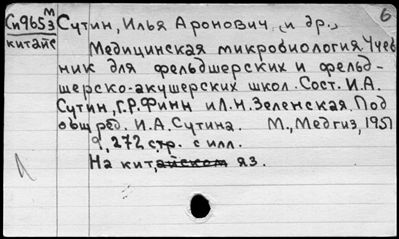 6
Сп965м3 Сутин, Илья Аронович, и др.
китайс
Медицинская микробиология. Учеб
ник для фельдшерских и фельд-
шерско-акушерских школ. Сост. И.А.
Сутин, Г.Р. Финн и Л.Н. Зеленская. Под
общ ред. И.А. Сутина. М., Медгиз, 1951
272 стр. с илл.
На китайском яз.